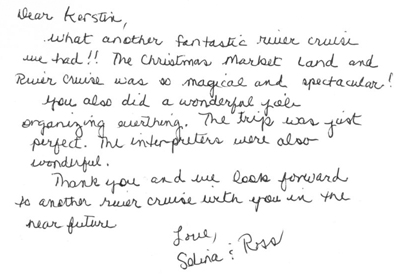 Dear Kerstin,
What another fantastic river cruise
we had!! The Christmas Market Land and
River Cruise was so magical and spectacular!
You also did a wonderful job
organizing everthing. The trip was just
perfect. The interpreters were also
wonderful.
Thank you and we look forward
to another river cruise with you in the
near future
Love,
Salina & Ross